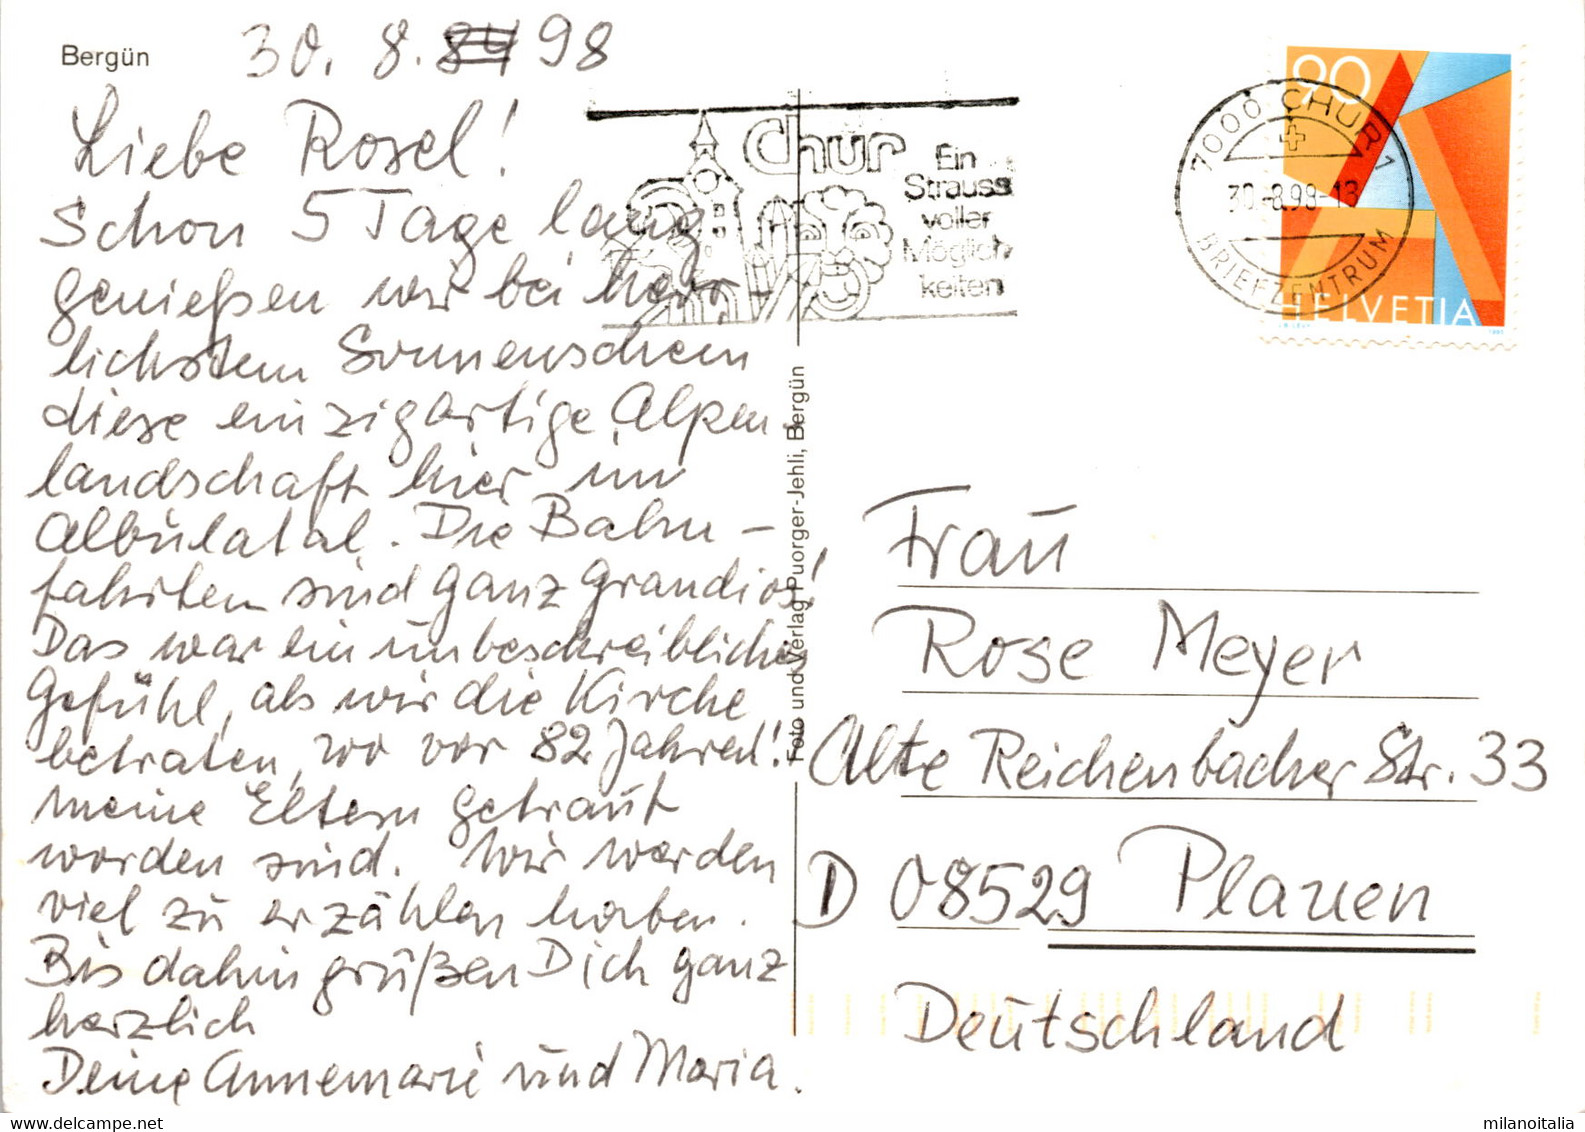 Bergün
30. 8. 98
Liebe Rosel!
Schon 5 Tage lang
genießen wir bei herr-
lichstem Sonnenschein
diese einzigartige Alpen-
landschaft hier im
Albulatal. Die Bahn-
fahrten sind ganz grandios!
Das war ein unbeschreibliches
Gefühl, als wir die Kirche
betraten, wo vor 82 Jahren!!
meine Eltern getraut
worden sind. Wir werden
viel zu erzählen haben.
Bis dahin grüßen Dich ganz
herzlich
Deine Annemarie und Maria.
Chur
Ein
Strauss
voller
Möglich
keiten
7000 CHUR 1
30.-8.98-13
BRIEFZENTRUM
90
HELVETIA
Foto und Verlag Puorger-Jehli, Bergün
Frau
Rose Meyer
Alte Reichenbacher Str. 33
D 08529 Plauen
Deutschland
milanoitalia